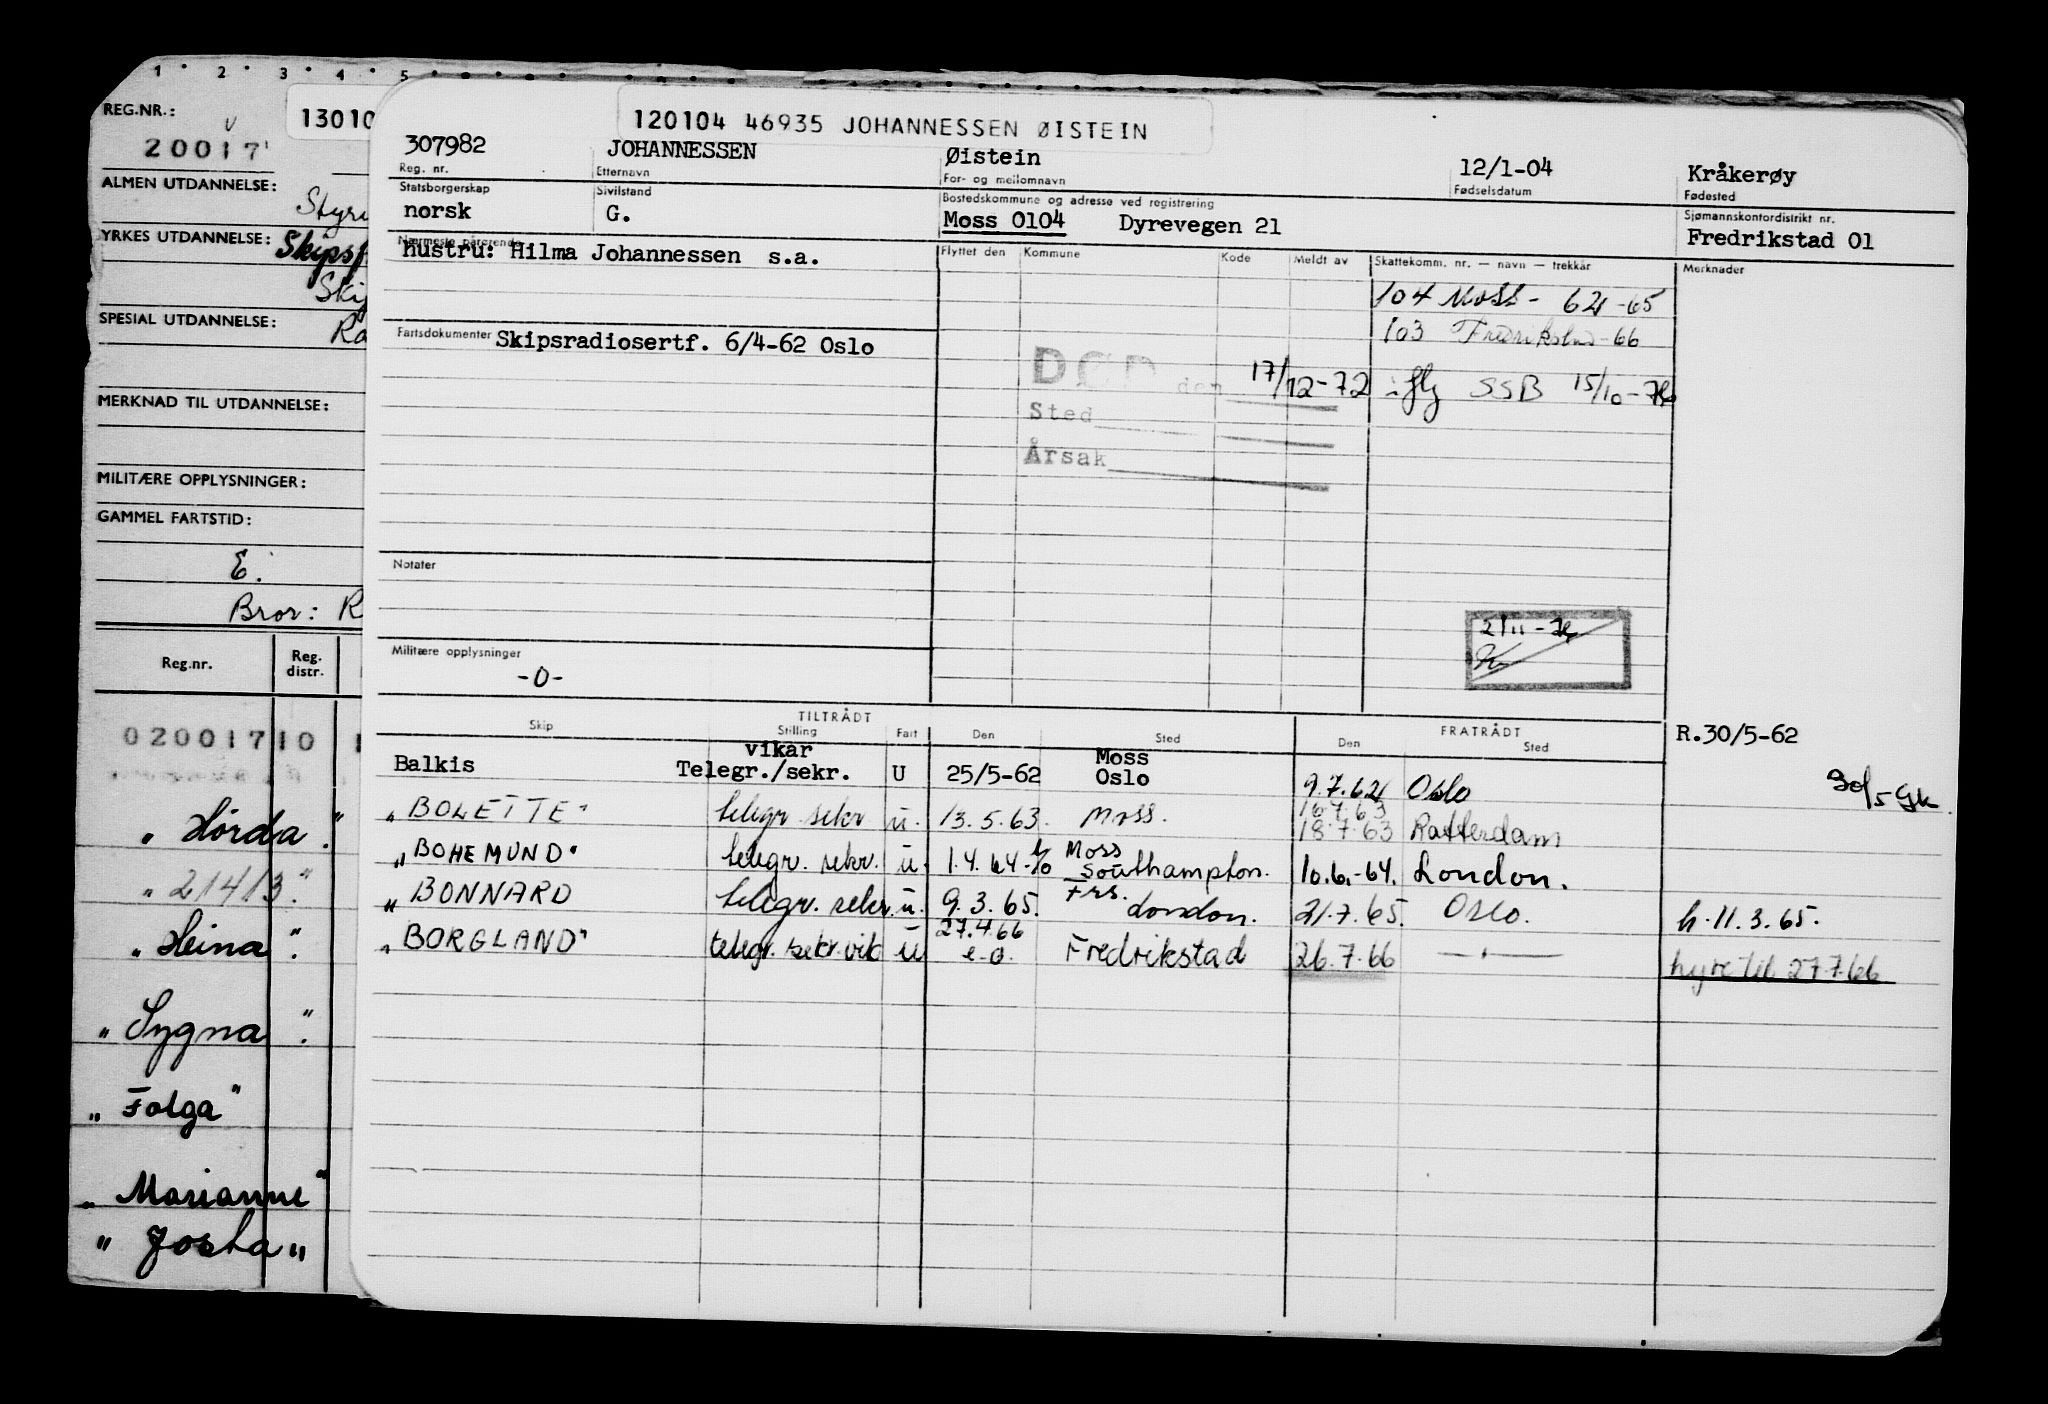 1 2 3 4 5
REG.NR.:
20017
ALMEN UTDANNELSE:
YRKES UTDANNELSE:
SPESIAL UTDANNELSE:
MERKNAD TIL UTDANNELSE:
MILITÆRE OPPLYSNINGER:
GAMMEL FARTSTID:
E.
Bror: R
Reg.nr. Reg. distr.
02001710
„Hörda“
„21413“
„Heina“
„Sygna“
„Folga“
„Marianne“
„Josta„
13010
120104 46935 JOHANNESSEN ØISTEIN
307982 JOHANNESSEN Øistein 12/1-04 Kråkerøy
Reg. nr. Etternavn For- og mellomnavn Fødselsdatum Fødested
Statsborgerskap Sivilstand Bostedskommune og adresse ved registrering Sjømannskontordistrikt nr.
norsk G. Moss 0104 Dyrevegen 21 Fredrikstad 01
Nærmeste pårørende Flyttet den Kommune Kode Meldt av Skattekomm. nr. — navn — trekkår Merknader
hustru: Hilma Johannessen s.a.
104 Moss - 62-65
103 Fredrikstad-66
Fartsdokumenter Skipsradiosertf. 6/4-62 Oslo
DØD den 17/12-72 SSB 15/10-74
Sted
Årsak
Notater
2/11-74
Militære opplysninger
-0-
TILTRÅDT FRATRÅDT
Skip Stilling Fart Den Sted Den Sted R.30/5-62
vikar Moss
Balkis Telegr./sekr. U 25/5-62 Oslo 9.7.62 Oslo 30/5 Gk.
16.7.63
„BOLETTE“ telegr sekr u. 13.5.63. Moss. 18.7.63 Rotterdam
Moss
„BOHEMUND“ telegr. sekr. u. 1.4.64 Southampton. 10.6.-64. London.
Frs.
„BONNARD telegr. sekr u. 9.3.65. London. 21.7.65. Oslo. h.11.3.65.
27.4.66
„BORGLAND“ telegr. sekr.vik u e.o. Fredrikstad 26.7.66 —"— hyre til 27.7.66